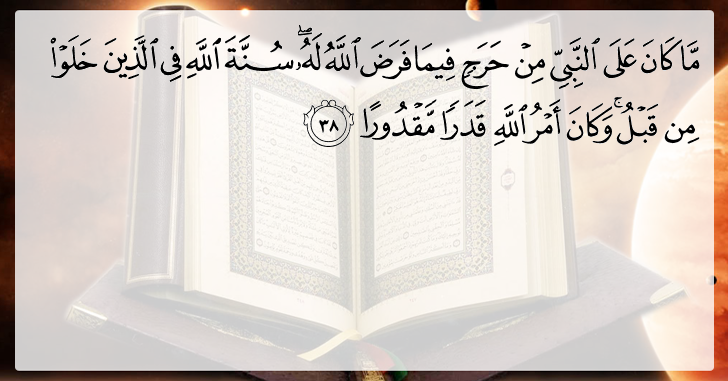 مَّا كَانَ عَلَى ٱلنَّبِيِّ مِنۡ حَرَجٖ فِيمَا فَرَضَ ٱللَّهُ لَهُۥۖ سُنَّةَ ٱللَّهِ فِي ٱلَّذِينَ خَلَوۡاْ
مِن قَبۡلُۚ وَكَانَ أَمۡرُ ٱللَّهِ قَدَرٗا مَّقۡدُورًا ٣٨